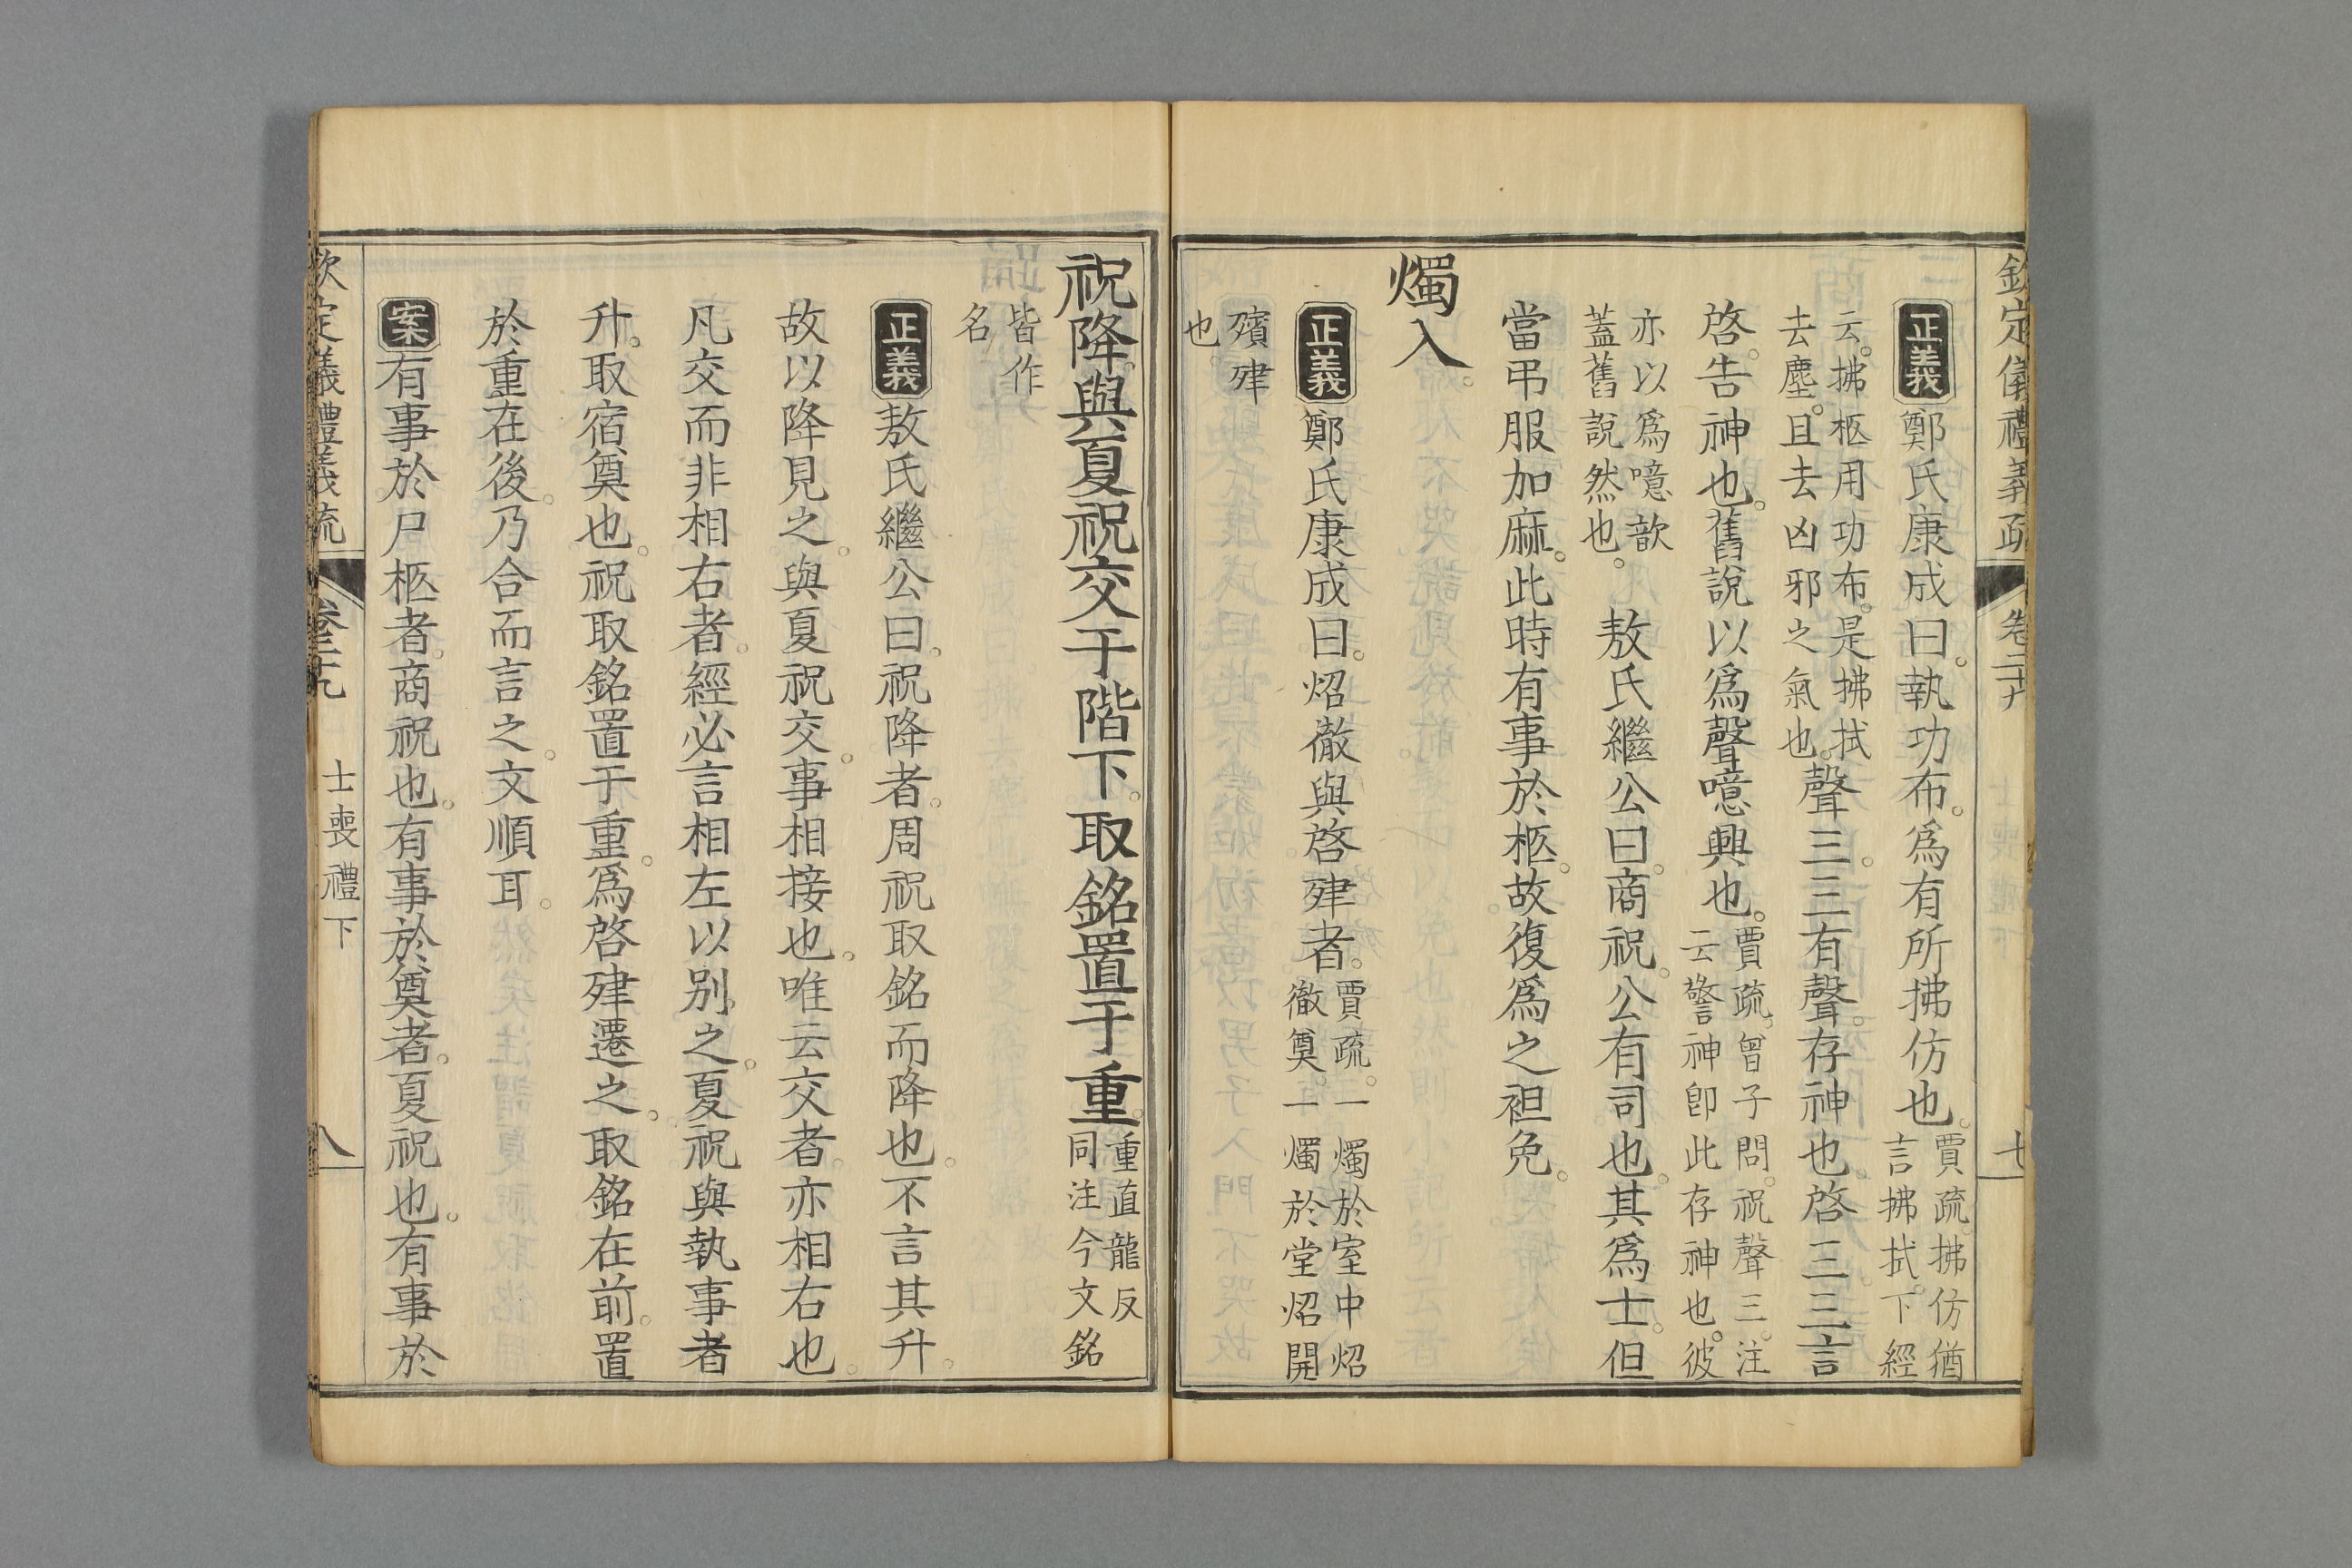 欽定儀禮義疏 卷二十九 七
正義 鄭氏康成曰。執功布。爲有所拂仿也。賈疏。拂仿猶
言拂拭。下經
云。拂柩用功布。是拂拭
去塵。且去凶邪之氣也。聲三。三有聲。存神也。啓三。三言
啓。告神也。舊說以爲聲噫興也。賈疏。曾子問。祝聲三。注
云警神卽此存神也。彼
亦以爲噫歆
蓋舊說然也。 敖氏繼公曰。商祝。公有司也。其爲士。但
當弔服加麻。此時有事於柩。故復爲之袒免。
燭入。
正義 鄭氏康成曰。炤徹與啓肂者。賈疏。一燭於室中炤
徹奠。一燭於堂炤開
殯肂
也。
祝降。與夏祝交于階下。取銘置于重。重直龍反
同注今文銘
皆作
名
正義 敖氏繼公曰。祝降者。周祝取銘而降也。不言其升。
故以降見之。與夏祝交。事相接也。唯云交者。亦相右也。
凡交而非相右者。經必言相左以別之。夏祝與執事者
升。取宿奠也。祝取銘置于重。爲啓肂遷之。取銘在前。置
於重在後。乃合而言之。文順耳。
案 有事於尸柩者。商祝也。有事於奠者。夏祝也。有事於
欽定儀禮義疏 卷二十九 士喪禮下 八